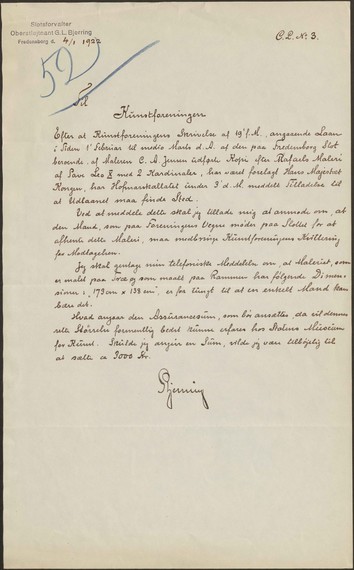 Slotsforvalter
Oberstløjtnant G.L. Bjerring
Fredensborg d. 4/1 1922
C.L. No 3.
52
Til
Kunstforeningen
Efter at Kunstforeningens Skrivelse af 19' f.M., angaaende Laan
i Tiden 1' Februar til medio Marts d.A. af den paa Fredensborg Slot
beroende af Maleren C.A. Jensen udførte Kopi efter Rafaels Maleri
af Pave Leo X med 2 Kardinaler, har været forelagt Hans Majestæt
Kongen, har Hofmarskallatet under 3' d.M. meddelt Tilladelse til
at Udlaanet maa finde Sted.
Ved at meddele dette skal jeg tillade mig at anmode om, at
den Mand, som paa Foreningens Vegne møder paa Slottet for at
afhente dette Maleri, maa medbringe Kunstforeningens Kvittering
for Modtagelsen.
Jeg skal gentage min telefoniske Meddelelse om, at Maleriet, som
er malet paa Træ og som maalt paa Rammen har følgende Dimen-
sioner: 179 cm x 138 cm, er for tungt til at en enkelt Mand kan
bære det.
Hvad angaar den Assurancesum, som bør ansættes, da vil dennes
rette Størrelse formentlig bedst kunne erfares hos Statens Museum
for Kunst. Skulde jeg angive en Sum, vilde jeg være tilbøjelig til
at sætte ca 3000 Kr.
Bjerring